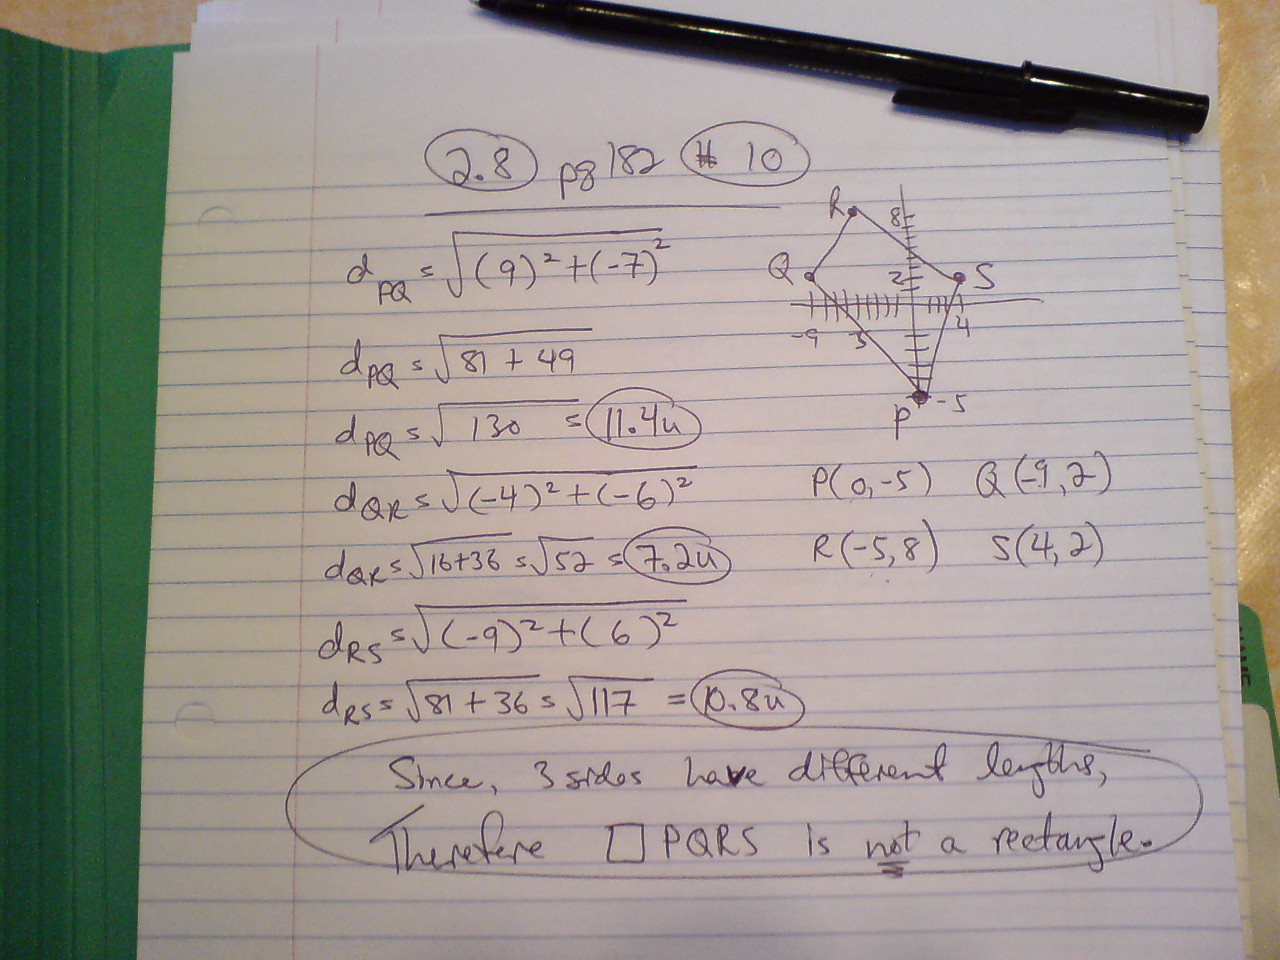 2.8 pg 182 # 10
d PQ = √(9)² + (-7)²
d PQ = √81 + 49
d PQ = √130 = 11.4u
d QR = √(-4)² + (-6)²
d QR = √16+36 = √52 = 7.2u
d RS = √(-9)² + (6)²
d RS = √81 + 36 = √117 = 10.8u
R 8
Q 2 S
-9 4
P -5
P(0,-5) Q(-9,2)
R(-5,8) S(4,2)
Since, 3 sides have different lengths,
Therefore □ PQRS is not a rectangle.